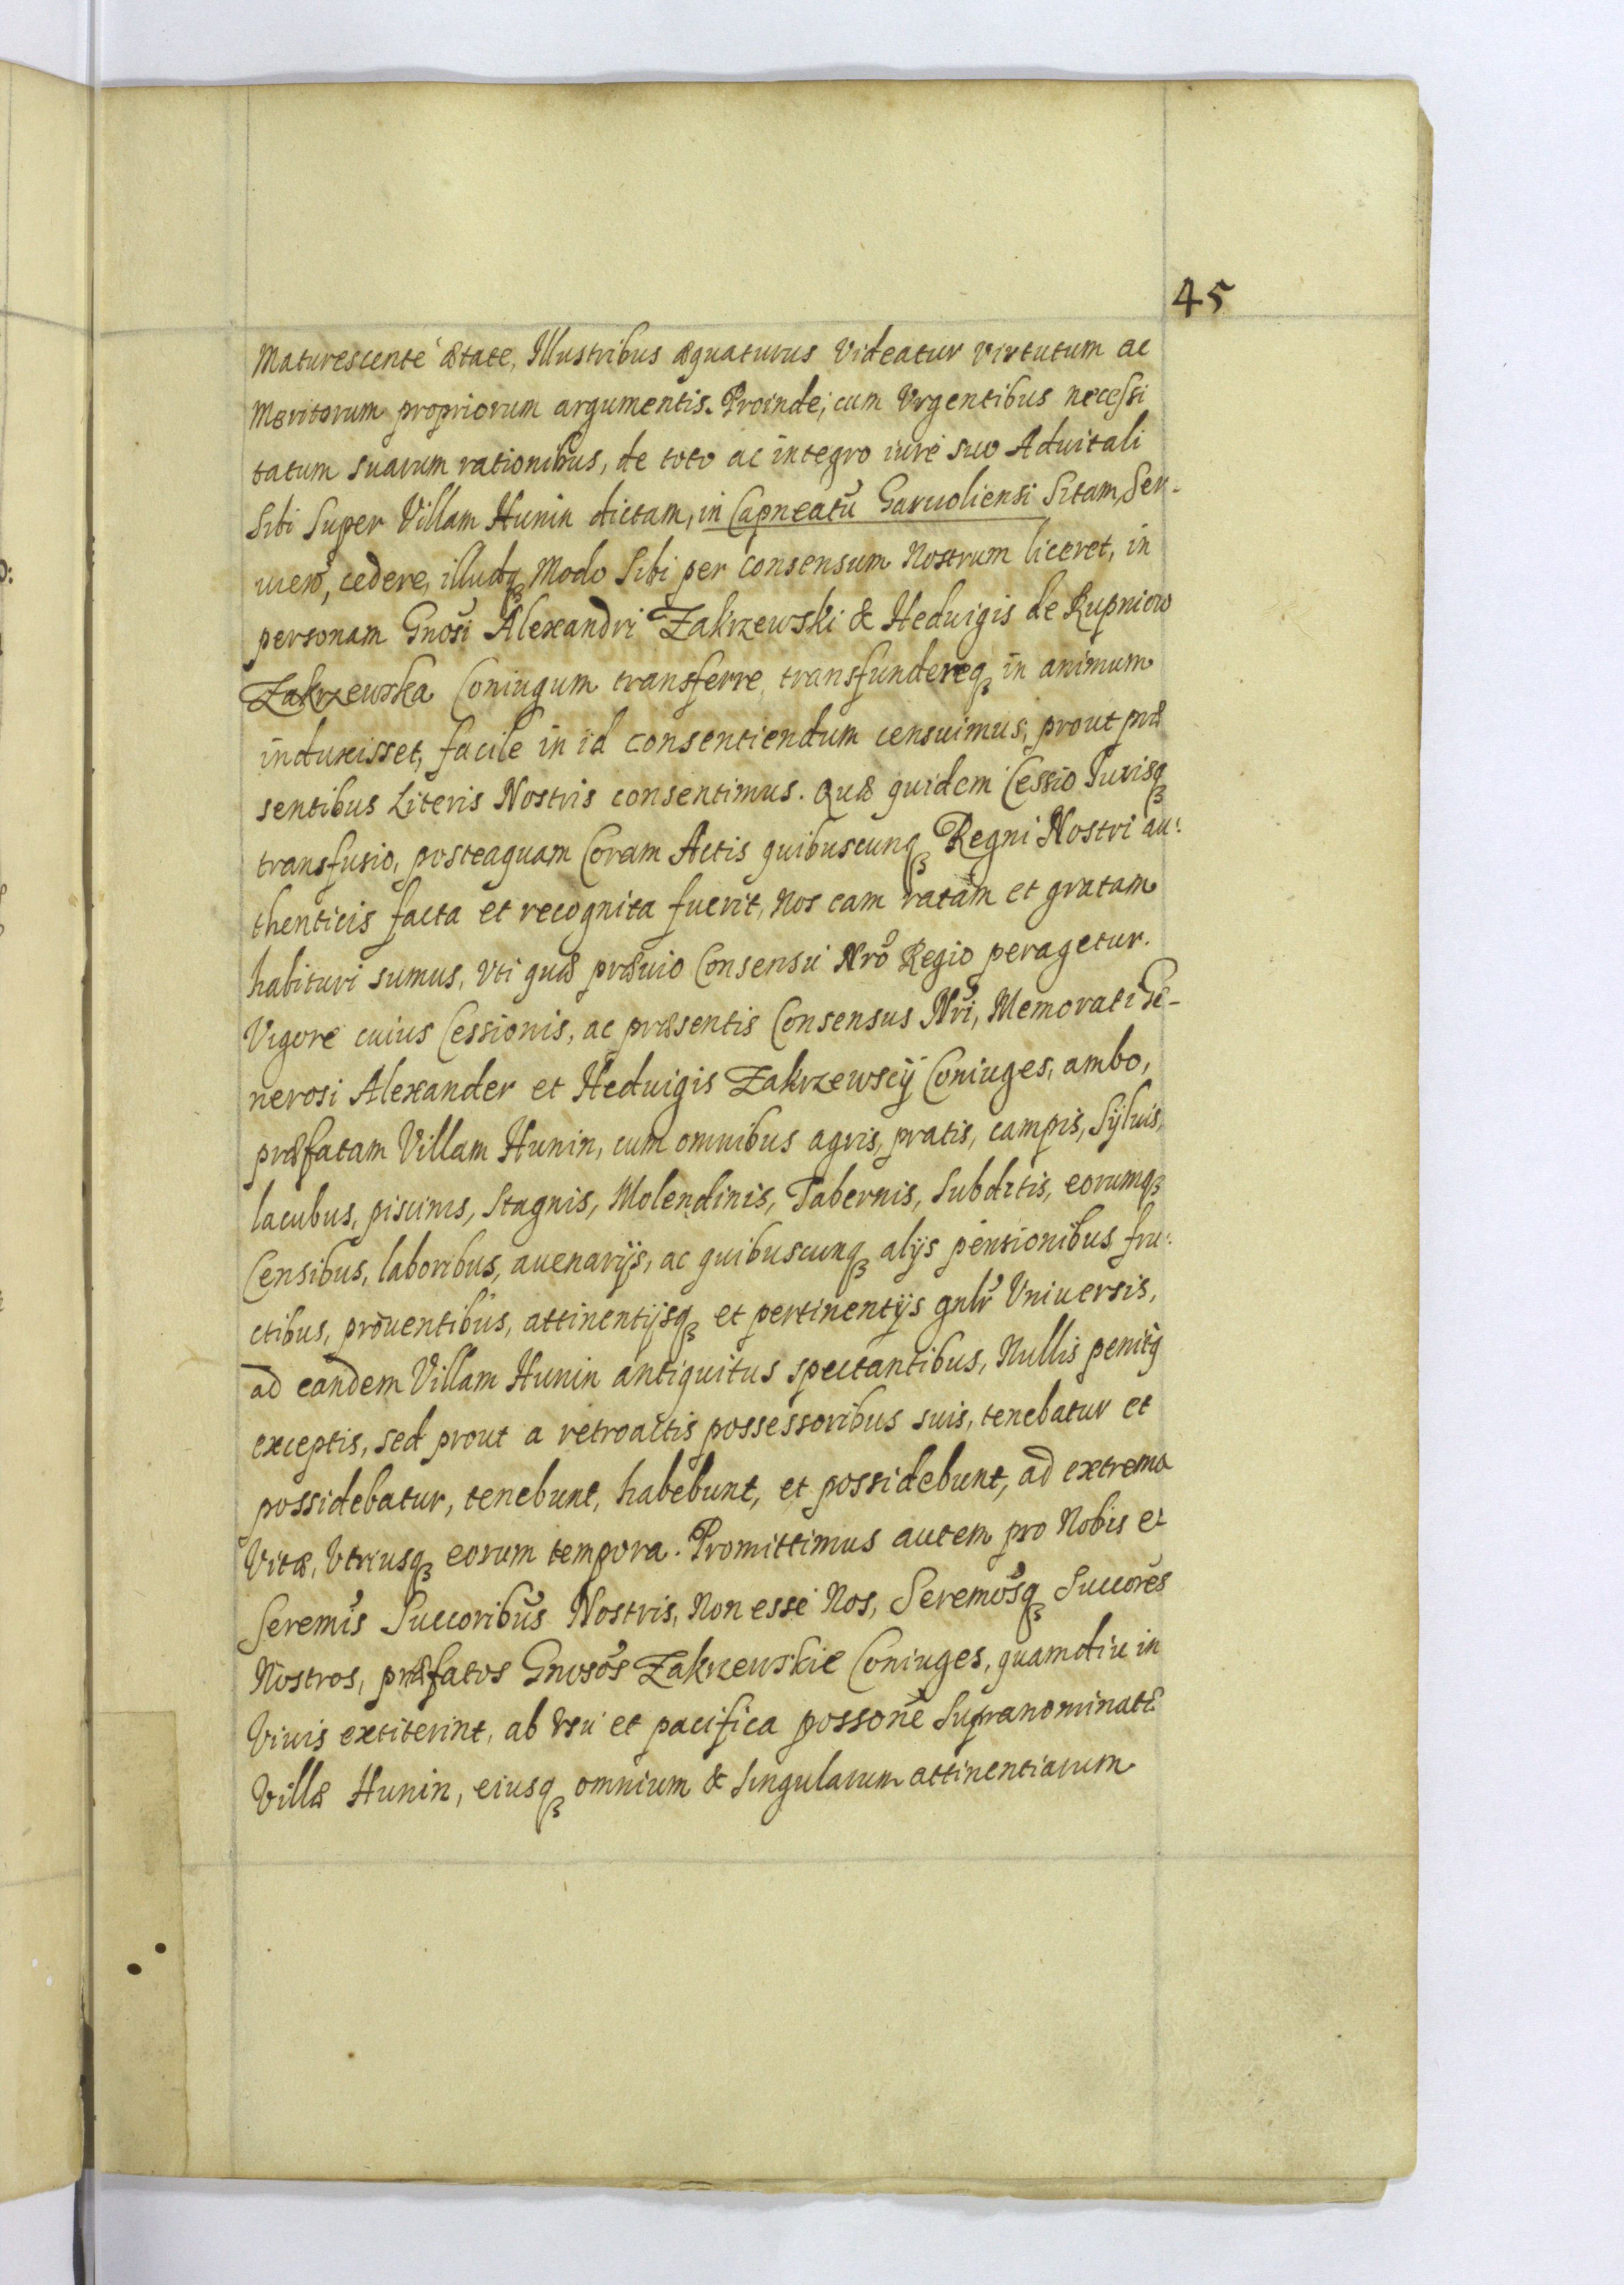 45
Maturescente ætate, Illustribus æquaturus Videatur virtutum ac
Meritorum propriorum argumentis. Proinde, cum Vrgentibus necessi
tatum suarum rationibus, de toto ac integro iure suo Aduitali
Sibi Super Villam Hunin dictam, in Capneatu Garuoliensi Sitam, Ser-
uien, cedere, illudq₃ Modo Sibi per consensum Nostrum liceret, in
personam Gnosi Alexandri Zakrzewski & Heduigis de Rupniow
Zakrzewska Coniugum transferre, transfundereq₃ in animum
induxisset, facile in id consentiendum censuimus, prout præ
sentibus Literis Nostris consentimus. Quæ quidem Cessio Iurisq₃
transfusio, posteaquam Coram Actis quibuscunq₃ Regni Nostri au:
thenticis facta et recognita fuerit, nos eam ratam et gratam
habituri sumus, vti quæ præuio Consensu Nro Regio peragetur.
Vigore cuius Cessionis, ac præsentis Consensus Nri, Memorati Ge-
nerosi Alexander et Heduigis Zakrzewscy Coniuges, ambo,
præfatam Villam Hunin, cum omnibus agris, pratis, campis, Syluis,
lacubus, piscinis, Stagnis, Molendinis, Tabernis, Subditis, eorumq₃
Censibus, laboribus, auenarijs, ac quibuscunq₃ alijs pensionibus fru:
ctibus, prouentibus, attinentijsq₃ et pertinentijs gnlr Vniuersis,
ad eandem Villam Hunin antiquitus spectantibus, Nullis penitq
exceptis, sed prout a retroactis possessoribus suis, tenebatur et
possidebatur, tenebunt, habebunt, et possidebunt, ad extrema
Vitæ, Vtriusq₃ eorum tempora. Promittimus autem pro Nobis et
Seremis Succoribus Nostris, Non esse Nos, Seremosq₃ Succores
Nostros, præfatos Gnosos Zakrzewskie Coniuges, quamdiu in
Viuis extiterint, ab Vsu et pacifica possone Supranominatæ
Villæ Hunin, eiusq₃ omnium & Singularum attinentiarum